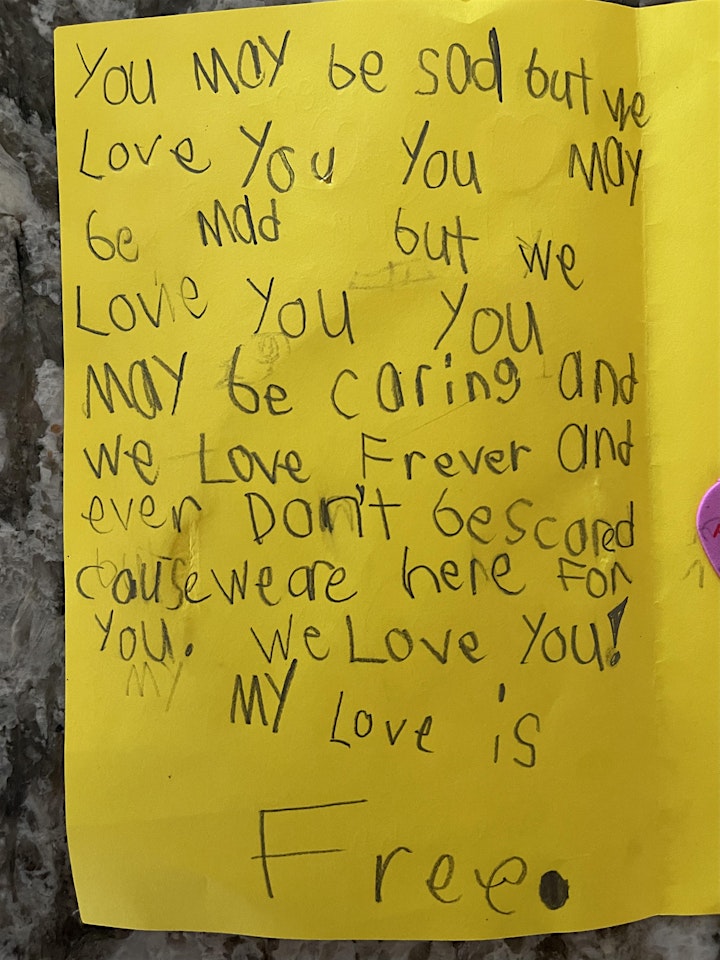 You MAY be sad but we
Love You You MAY
be Mad but we
Love You You
MAY be caring and
we Love Frever and
ever Don't be scared
cause we are here For
you. We Love You!
MY
MY Love is
Free.